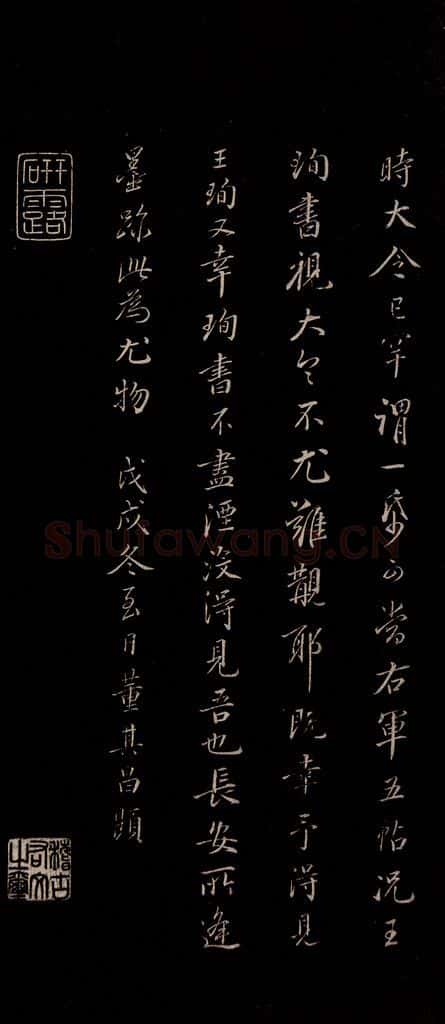 時大令已罕謂一帋可當右軍五帖况王
珣書視大令不尤難覯耶既幸予得見
王珣又幸珣書不盡湮没得見吾也長安所逢
墨跡此為尤物 戊戌冬至日董其昌題
研露
稽古右文之璽
Shufawang.CN